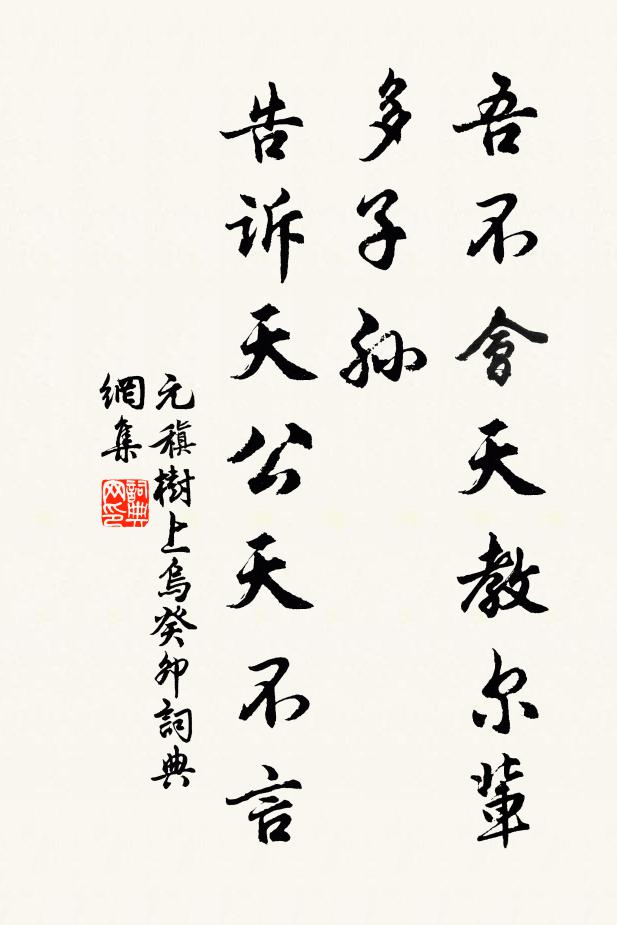 吾不會天教尔輩
多子孫
告訴天公天不言
元稹樹上烏癸卯詞典
網集
詞典
网印